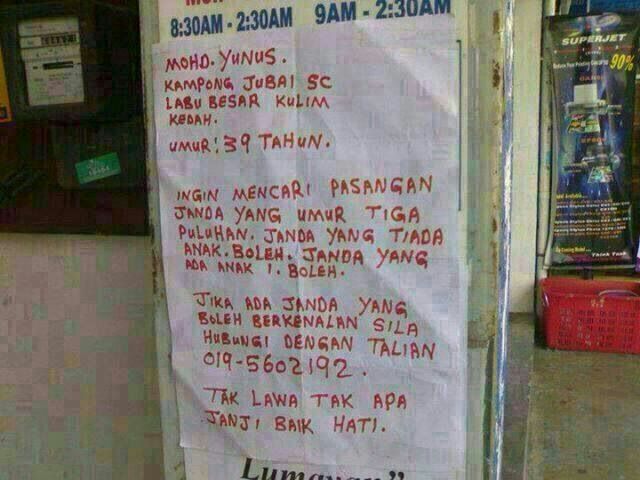 8:30AM - 2:30AM 9AM - 2:30AM
MOHD. YUNUS.
KAMPONG JUBAI SC
LABU BESAR KULIM
KEDAH.
UMUR: 39 TAHUN.
INGIN MENCARI PASANGAN
JANDA YANG UMUR TIGA
PULUHAN. JANDA YANG TIADA
ANAK. BOLEH. JANDA YANG
ADA ANAK 1. BOLEH.
JIKA ADA JANDA YANG
BOLEH BERKENALAN SILA
HUBUNGI DENGAN TALIAN
019-5602192.
TAK LAWA TAK APA
JANJI BAIK HATI.
Lumayan"
SUPERJET
90%
Think Tank